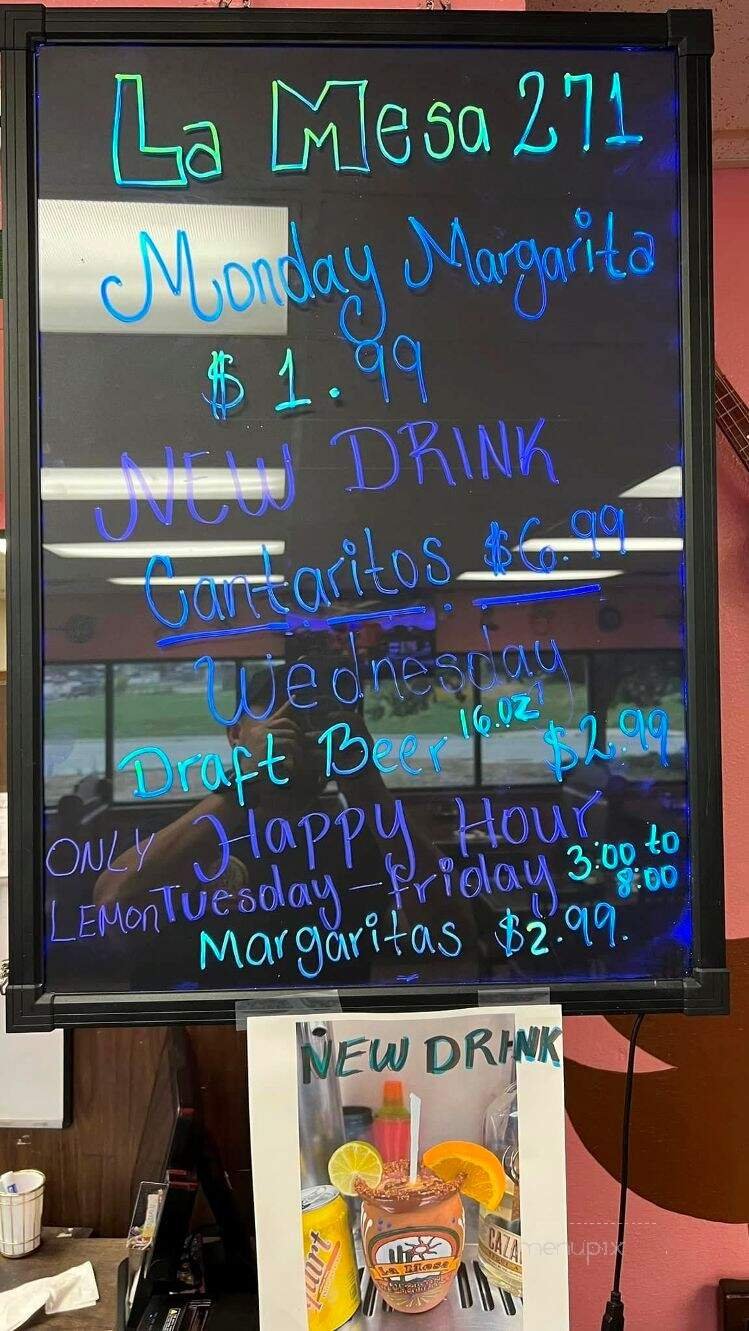 La Mesa 271
Monday Margarita
$1.99
NEW DRINK
Cantaritos $6.99
Wednesday
Draft Beer 16.oz $2.99
ONLY Happy Hour
LEMON Tuesday - friday 3:00 to 8:00
Margaritas $2.99.
NEW DRINK
La Mesa
CAZA
menupix